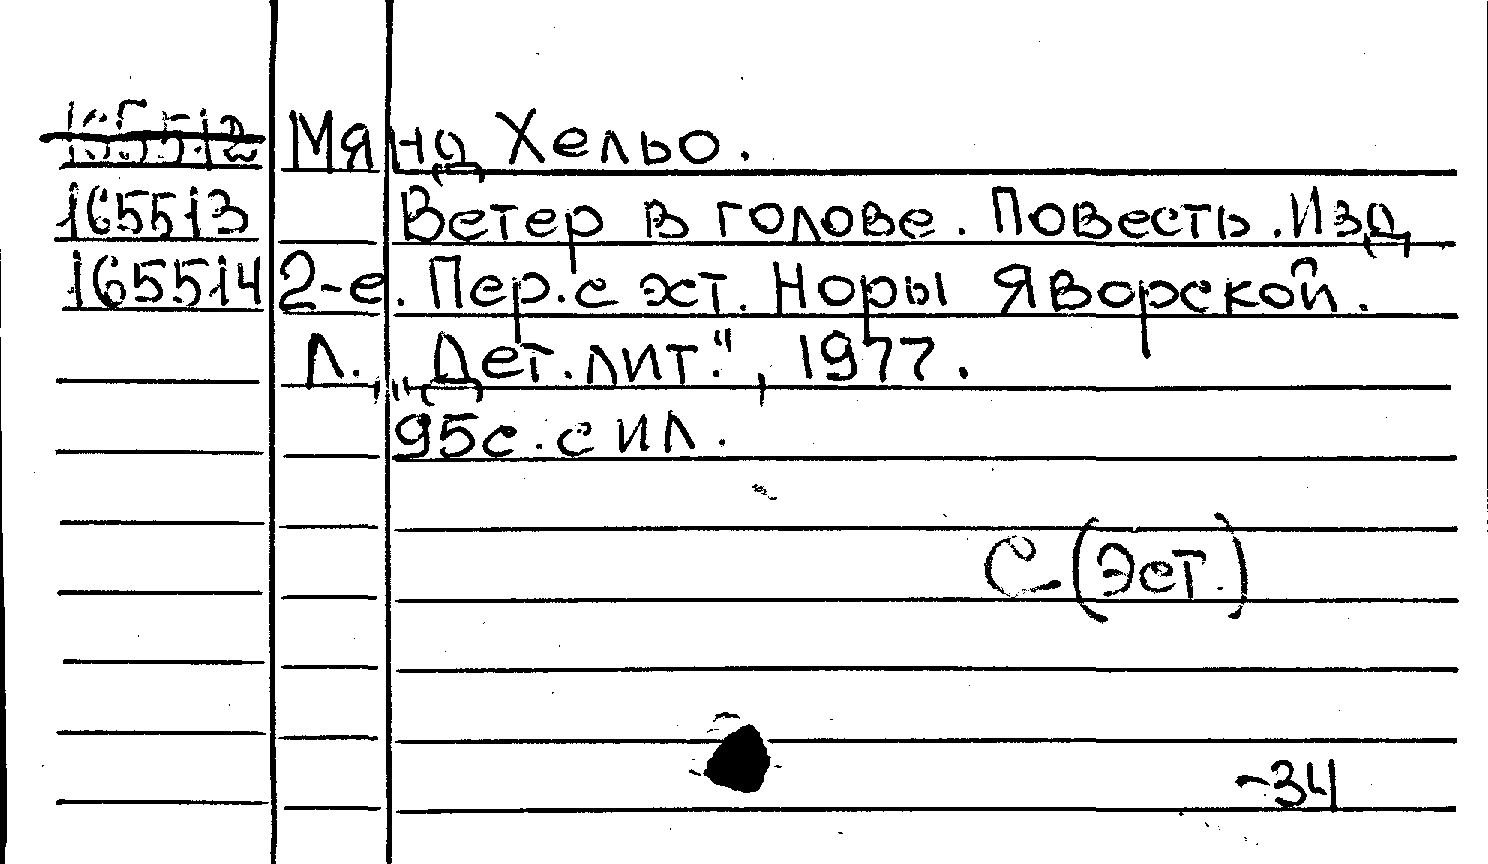 165512 Мянд Хельо.
165513 Ветер в голове. Повесть. Изд
165514 2-е. Пер. с эст. Норы Яворской.
Л., "Дет. лит.", 1977.
95с. с ил.
С (Эст.)
-34